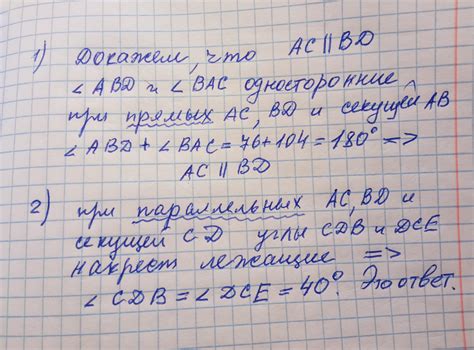 1) Докажем, что AC || BD
∠ABD и ∠BAC односторонние
при прямых AC, BD и секущей AB
∠ABD + ∠BAC = 76+104 = 180° =>
AC || BD
2) при параллельных AC, BD и
секущей CD углы CDB и DCE
накрест лежащие =>
∠CDB = ∠DCE = 40°. Это ответ.